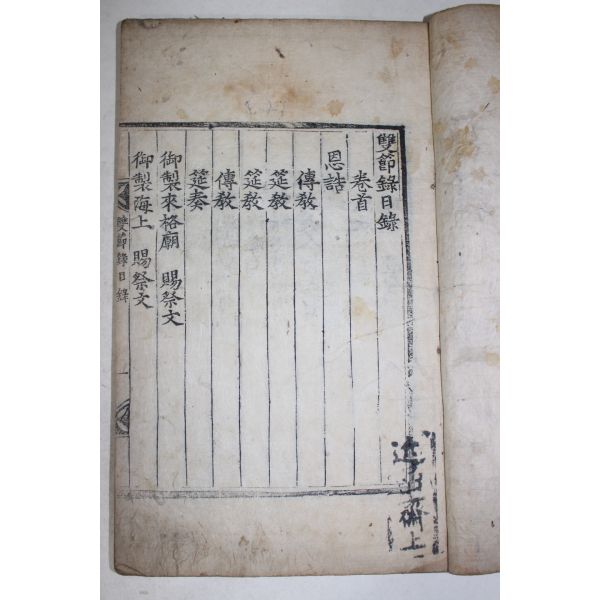 雙節錄目錄
卷首
恩誥
傳敎
筵敎
筵敎
傳敎
筵奏
御製來格廟　賜祭文
御製海上　賜祭文
雙節錄目錄　一